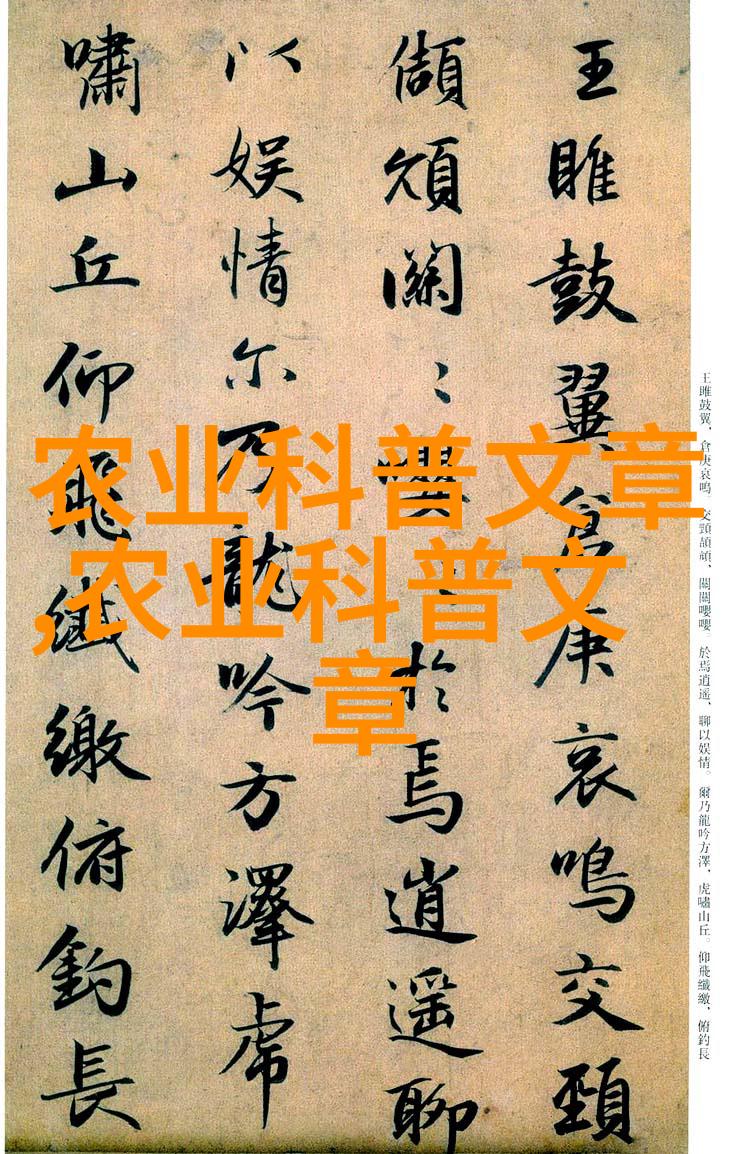 王雎鼓翼倉庚哀鳴交頸
頡頏關〻嚶〻於焉逍遥聊
以娱情尔乃龍吟方澤虎
嘯山丘仰飛纖繳俯釣長
王雎鼓翼、倉庚哀鳴。交頸頡頏、關關嚶嚶。於焉逍遥、聊以娱情。爾乃龍吟方澤、虎嘯山丘。仰飛纖繳、俯釣長
农业科普文章
,农业科普文
章